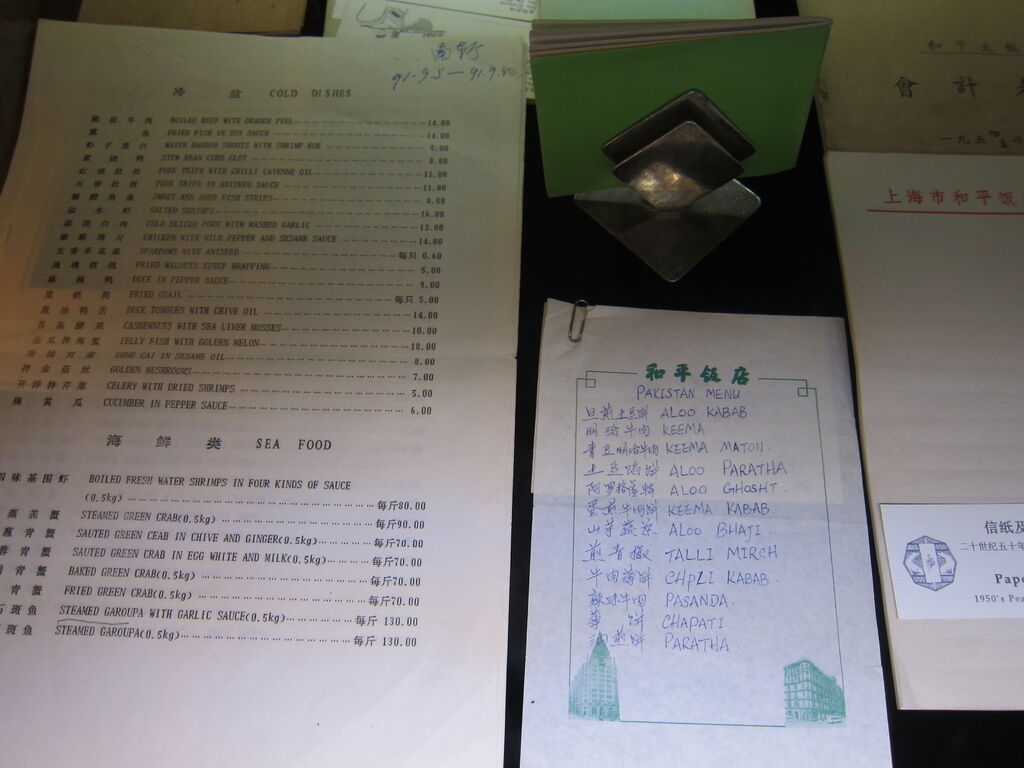 91.9.5—91.9.30
冷 盆 COLD DISHES
陈皮牛肉 BOILED BEEF WITH ORANGE PEEL 14.00
熏 鱼 FRIED FISH IN SUY SAUCE 14.00
虾子茭白 WATER BAMBOO SHOOTS WITH SHRIMP ROE 5.00
素烧鸭 STEW BEAN CURD CLOT 8.00
红油肚丝 PORK TRIPE WITH CHILLI CAYENNE OIL 11.00
五香肚丝 PORK TRIPE IN ANISEED SAUCE 11.00
糖醋鱼条 SWEET AND SOUR FISH STRIPS 8.50
盐水虾 SALTED SHRIMPS 16.00
蒜泥白肉 COLD SLICED PORK WITH MASHED GARLIC 12.00
椒麻鸡片 CHICKEN WITH WILD PEPPER AND SESAME SAUCE 14.00
五香禾花雀 SPARROWS WITH ANISEED 每只 0.60
琉璃核桃 FRIED WALNUTS SYRUP WRAPPING 5.00
麻辣鸭 DUCK IN PEPPER SAUCE 9.00
FRIED QUAIL 每只 5.00
DUCK TONGUES WITH CHIVE OIL 14.00
苔条腰果 CASHEWNUTS WITH SEA LIVER MOSSES 10.00
金瓜拌海蜇 JELLY FISH WITH GOLDEN MELON 18.00
香油贡菜 GONG CAI IN SESAME OIL 8.00
拌金菇丝 GOLDEN MUSHROOMS 7.00
开洋拌芹菜 CELERY WITH DRIED SHRIMPS 5.00
辣黄瓜 CUCUMBER IN PEPPER SAUCE 6.00
海 鲜 类 SEA FOOD
四味基围虾 BOILED FRESH WATER SHRIMPS IN FOUR KINDS OF SAUCE
(0.5kg) 每斤80.00
蒸羔蟹 STEAMED GREEN CRAB(0.5kg) 每斤90.00
葱青蟹 SAUTED GREEN CEAB IN CHIVE AND GINGER(0.5kg) 每斤70.00
蓉青蟹 SAUTED GREEN CRAB IN EGG WHITE AND MILK(0.5kg) 每斤70.00
青蟹 BAKED GREEN CRAB(0.5kg) 每斤70.00
青蟹 FRIED GREEN CRAB(0.5kg) 每斤70.00
石斑鱼 STEAMED GAROUPA WITH GARLIC SAUCE(0.5kg) 每斤 130.00
斑鱼 STEAMED GAROUPA(0.5kg) 每斤 130.00
和平饭店
PAKISTAN MENU
旦煎土豆饼 ALOO KABAB
明治牛肉 KEEMA.
青豆明治牛肉 KEEMA MATON.
土豆馅饼 ALOO PARATHA.
ALOO GHOSHT.
KEEMA KABAB.
山芋蔬菜 ALOO BHAJI.
煎青椒 TALLI MIRCH.
牛肉薄饼 CHPLI KABAB.
PASANDA.
CHAPATI.
油煎饼 PARATHA.
和平大饭
會計
一九五
上海市和平饭
信纸及
二十世纪五十年
Pape
1950's Pea